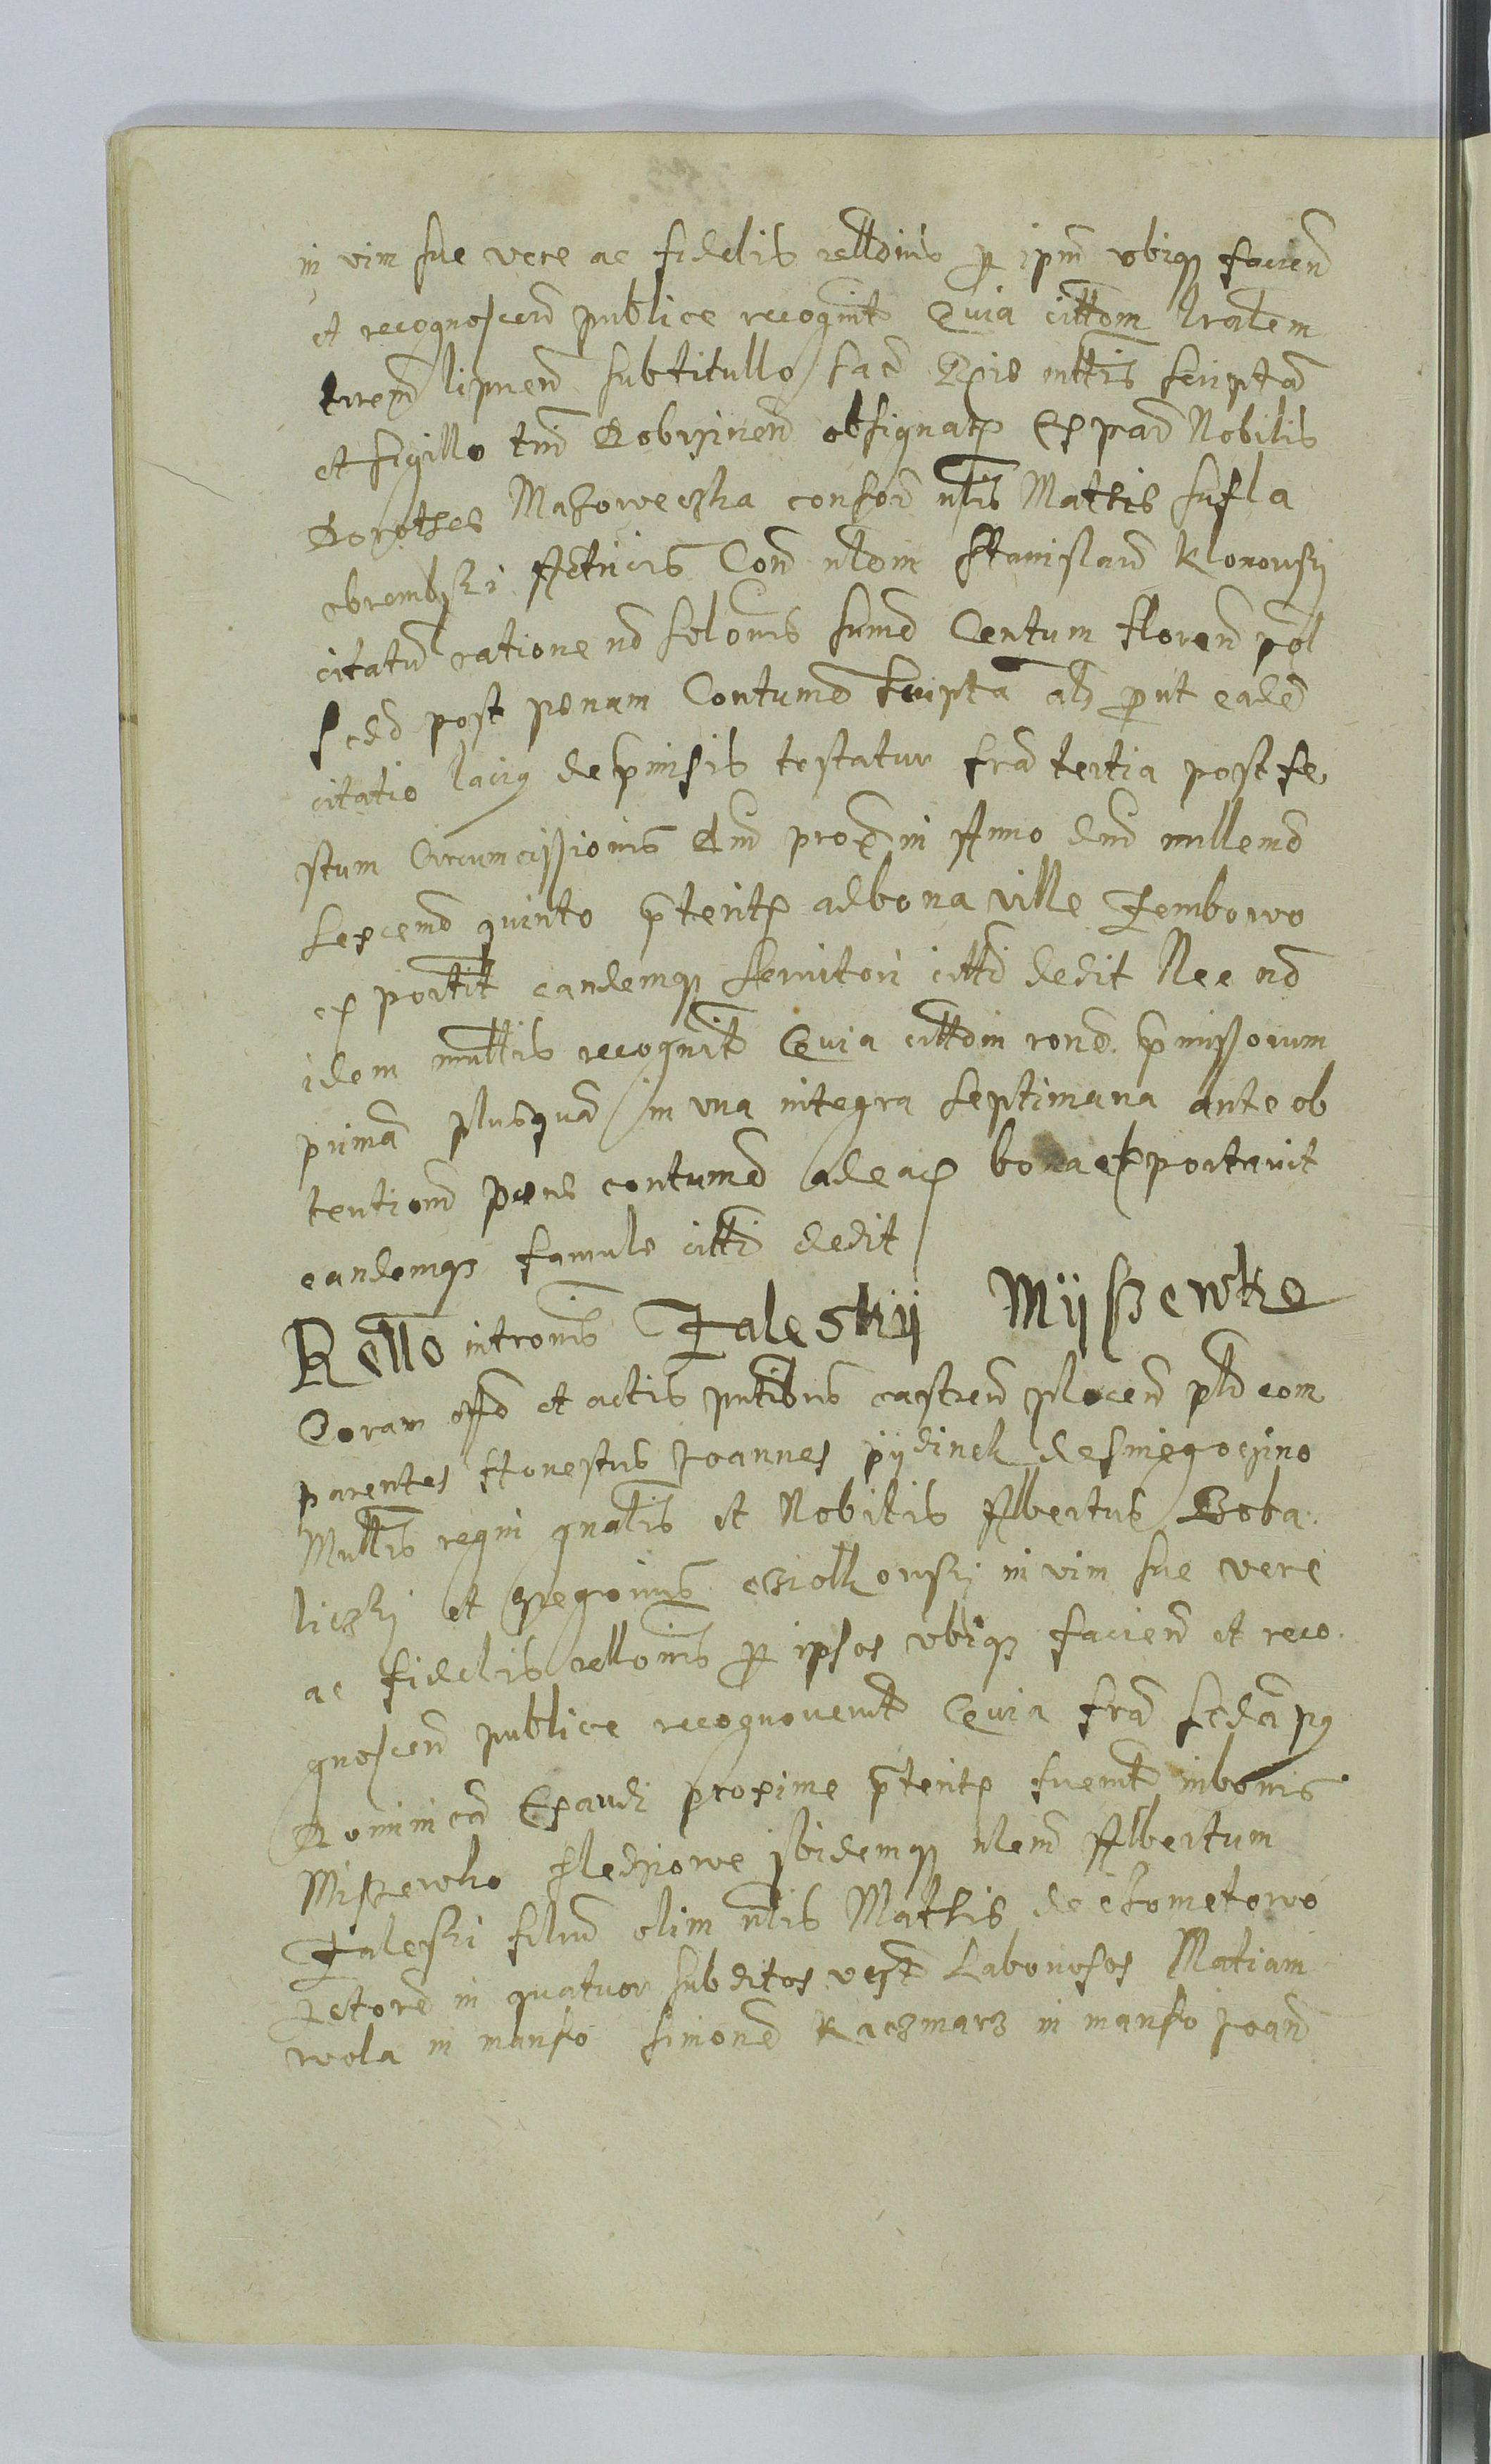 in vim sue vere ac fidelis relldnis p ipm vbiq facien
et recognoscen publice recognit Quia cittom lralem
trrem lipnen subtitullo sac Rgis mttis scripta
et sigillo trm Dobrjinen obsignat Ex par Nobilis
Dorothes Mazoweczka consor nlis Mathis Sufla
obrombski Actricis Con nldm Stanislau Klonowsy
citatu ratione no solonis sume Centum floren pol
sed post penam Contume scripta ab put eade
citatio laciq de pmissis testatur fra tertia post fe
stum Circumcissionis Dm prox in Anno dm millemo
sexcemo quinto pterit ad bona ville Zembowo
ex portit eandemq seruitori citti dedit Nec no
idem mttlis recognit Quia cittdm rone pmissorum
prima plusqua in vna integra septimana ante ob
tentiom pene contume ad eas bona exportauit
eandemq famule citti dedit
Rello intronis Zaleskij Mijszewke
Coram offo et actis pntibus castren plocen pld com
parentes Honestus Joannes pijdinek de sniegocjino
Mttlis regni gnalis et Nobilis Albertus Boba
liczki et gregorius Cziolkowski in vim sue vere
ac fidelis rellonis p ipsos vbiq facien et reco
gnoscen publice recognouerut Quia fra scda pq
Dominica Exaudi proxime pterit fuerut in bonis
Miszewko Sledziowe ibidemq nlem Albertum
Zaleski filiu olim nlis Mathis de chometowo
Actore in quatuor subditos vest Laboriosos Matiam
wola in manso simone Kaczmarz in manso Joan